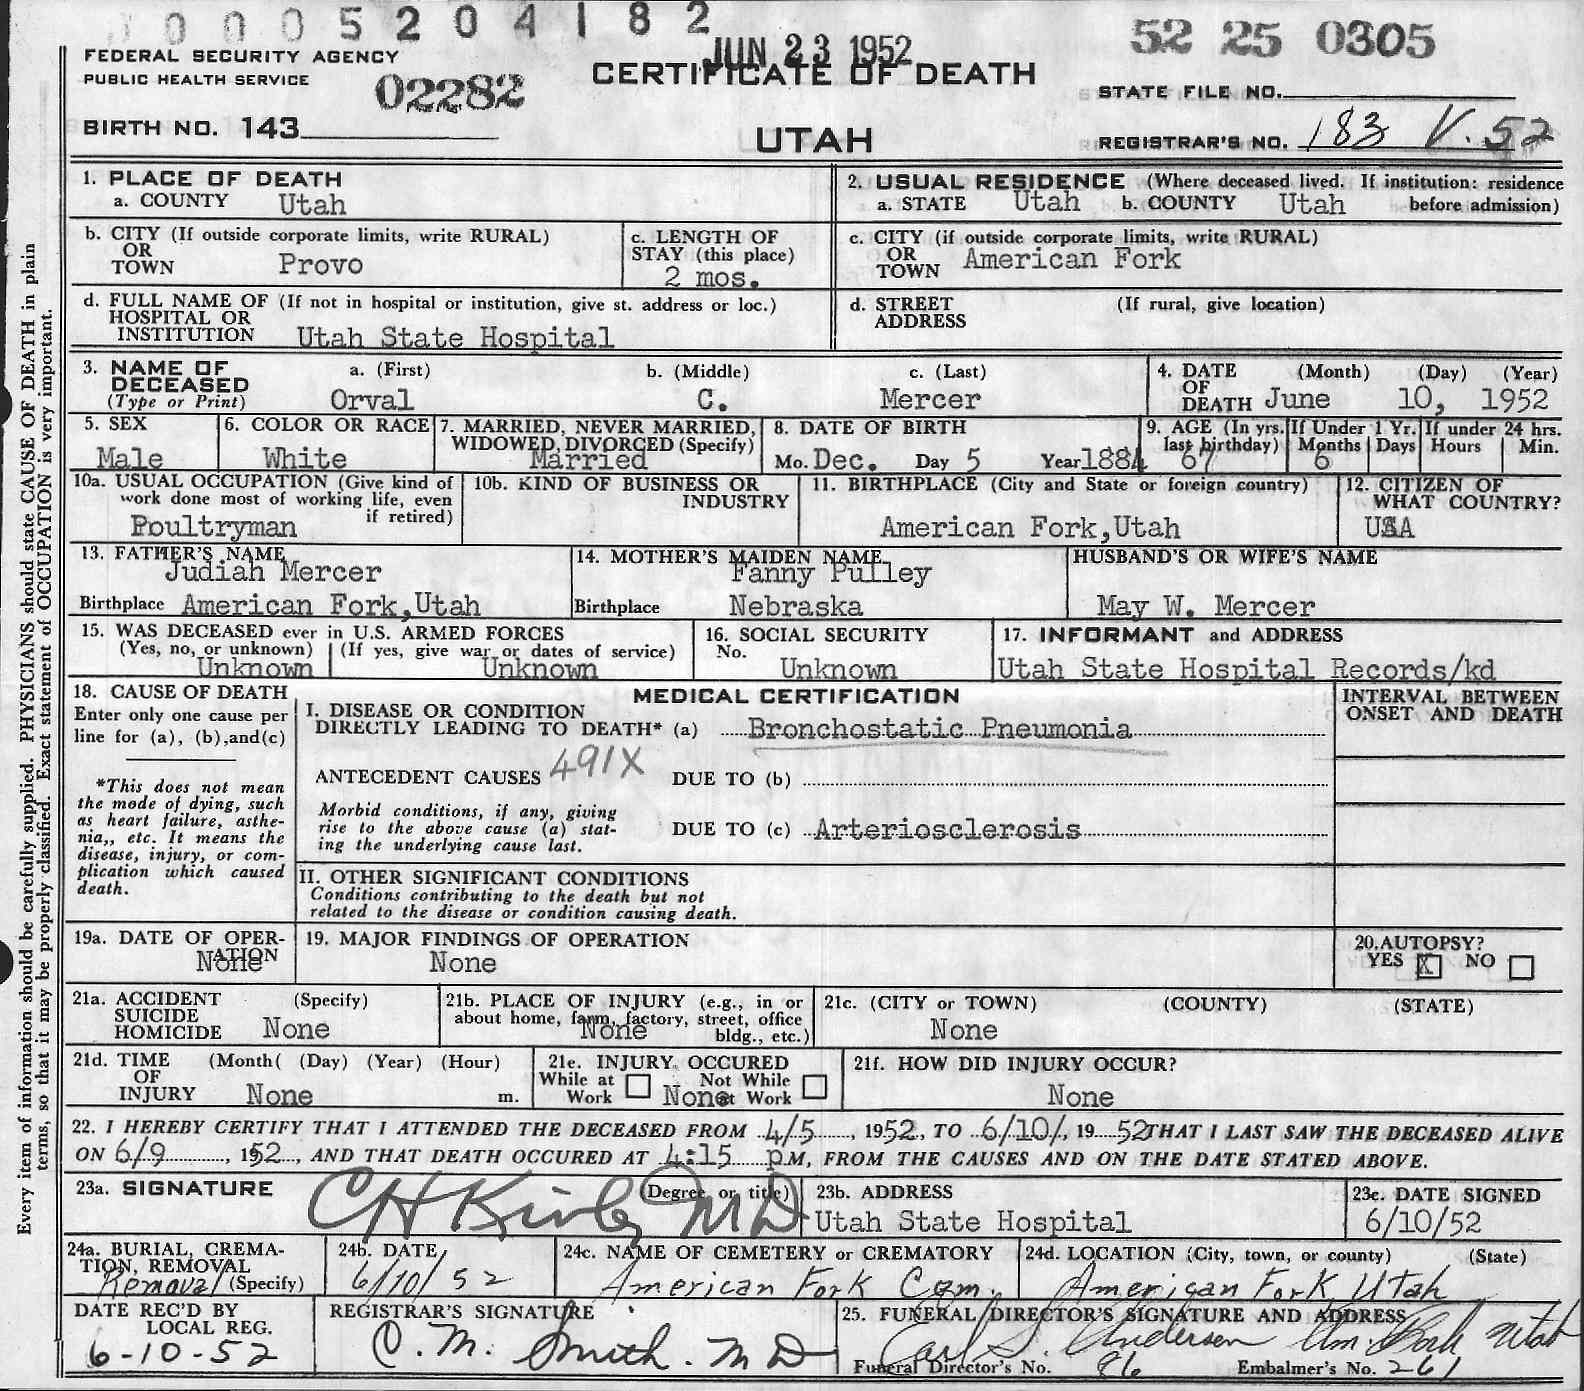 0005204182
JUN 23 1952
52 25 0305
FEDERAL SECURITY AGENCY
PUBLIC HEALTH SERVICE
02282
CERTIFICATE OF DEATH
STATE FILE NO.
BIRTH NO. 143
UTAH
REGISTRAR'S NO. 183 V. 52
1. PLACE OF DEATH
a. COUNTY Utah
2. USUAL RESIDENCE (Where deceased lived. If institution: residence
a. STATE Utah b. COUNTY Utah before admission)
b. CITY (If outside corporate limits, write RURAL)
OR
TOWN Provo
c. LENGTH OF
STAY (this place)
2 mos.
c. CITY (if outside corporate limits, write RURAL)
OR
TOWN American Fork
d. FULL NAME OF (If not in hospital or institution, give st. address or loc.)
HOSPITAL OR
INSTITUTION Utah State Hospital
d. STREET (If rural, give location)
ADDRESS
3. NAME OF
DECEASED
(Type or Print)
a. (First) b. (Middle) c. (Last)
Orval C. Mercer
4. DATE (Month) (Day) (Year)
OF
DEATH June 10, 1952
5. SEX
Male
6. COLOR OR RACE
White
7. MARRIED, NEVER MARRIED,
WIDOWED, DIVORCED (Specify)
Married
8. DATE OF BIRTH
Mo. Dec. Day 5 Year 1884
9. AGE (In yrs.
last birthday)
67
If Under 1 Yr.
Months Days
6
If under 24 hrs.
Hours Min.
10a. USUAL OCCUPATION (Give kind of
work done most of working life, even
if retired)
Poultryman
10b. KIND OF BUSINESS OR
INDUSTRY
11. BIRTHPLACE (City and State or foreign country)
American Fork,Utah
12. CITIZEN OF
WHAT COUNTRY?
USA
13. FATHER'S NAME
Judiah Mercer
Birthplace American Fork,Utah
14. MOTHER'S MAIDEN NAME
Fanny Pulley
Birthplace Nebraska
HUSBAND'S OR WIFE'S NAME
May W. Mercer
15. WAS DECEASED ever in U.S. ARMED FORCES
(Yes, no, or unknown) (If yes, give war or dates of service)
Unknown Unknown
16. SOCIAL SECURITY
No.
Unknown
17. INFORMANT and ADDRESS
Utah State Hospital Records/kd
18. CAUSE OF DEATH
Enter only one cause per
line for (a), (b),and(c)
*This does not mean
the mode of dying, such
as heart failure, asthe-
nia,, etc. It means the
disease, injury, or com-
plication which caused
death.
MEDICAL CERTIFICATION
INTERVAL BETWEEN
ONSET AND DEATH
I. DISEASE OR CONDITION
DIRECTLY LEADING TO DEATH* (a) Bronchostatic Pneumonia
ANTECEDENT CAUSES 491X DUE TO (b)
Morbid conditions, if any, giving
rise to the above cause (a) stat-
ing the underlying cause last.
DUE TO (c) Arteriosclerosis
II. OTHER SIGNIFICANT CONDITIONS
Conditions contributing to the death but not
related to the disease or condition causing death.
19a. DATE OF OPER-
ATION
None
19. MAJOR FINDINGS OF OPERATION
None
20.AUTOPSY?
YES X NO
21a. ACCIDENT (Specify)
SUICIDE
HOMICIDE None
21b. PLACE OF INJURY (e.g., in or
about home, farm, factory, street, office
bldg., etc.)
None
21c. (CITY or TOWN) (COUNTY) (STATE)
None
21d. TIME (Month( (Day) (Year) (Hour)
OF
INJURY None m.
21e. INJURY OCCURED
While at Work Not While at Work
None
21f. HOW DID INJURY OCCUR?
None
22. I HEREBY CERTIFY THAT I ATTENDED THE DECEASED FROM 4/5, 1952, TO 6/10/, 19 52 THAT I LAST SAW THE DECEASED ALIVE
ON 6/9, 1952, AND THAT DEATH OCCURED AT 4:15 pM, FROM THE CAUSES AND ON THE DATE STATED ABOVE.
23a. SIGNATURE (Degree or title)
C H Kirby M D
23b. ADDRESS
Utah State Hospital
23c. DATE SIGNED
6/10/52
24a. BURIAL, CREMA-
TION, REMOVAL
Removal (Specify)
24b. DATE
6/10/52
24c. NAME OF CEMETERY or CREMATORY
American Fork Cem.
24d. LOCATION (City, town, or county) (State)
American Fork Utah
DATE REC'D BY
LOCAL REG.
6-10-52
REGISTRAR'S SIGNATURE
C. M. Smith. M D
25. FUNERAL DIRECTOR'S SIGNATURE AND ADDRESS
Earl S. Anderson Am. Fork Utah
Funeral Director's No. 86 Embalmer's No. 261
Every item of information should be carefully supplied. PHYSICIANS should state CAUSE OF DEATH in plain
terms, so that it may be properly classified. Exact statement of OCCUPATION is very important.